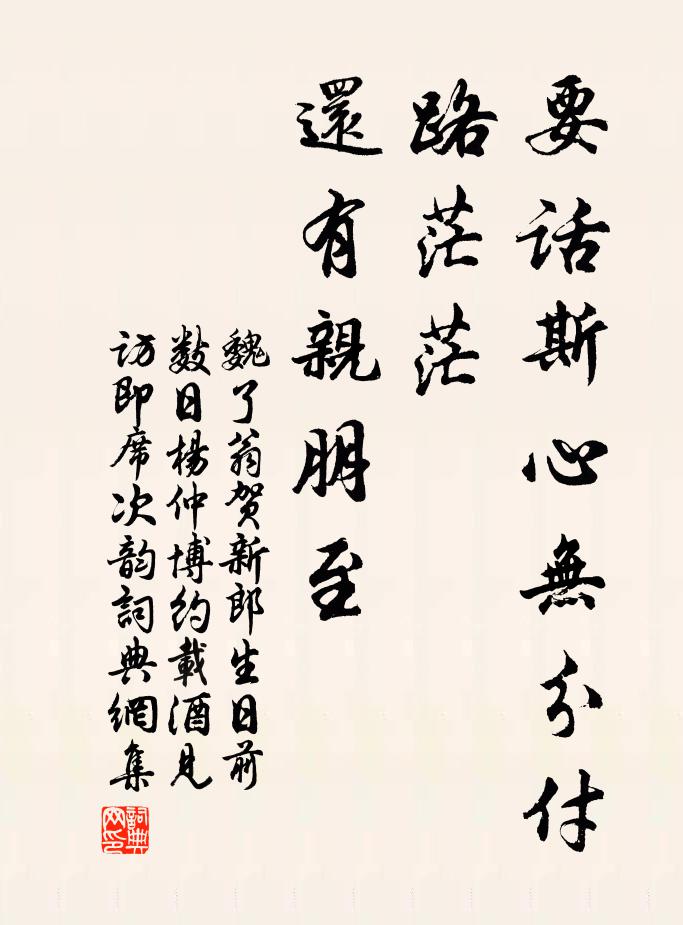 要話斯心無分付
路茫茫
還有親朋至
魏了翁賀新郎生日前
數日楊仲博約載酒見
訪即席次韵詞典網集
詞典
网印